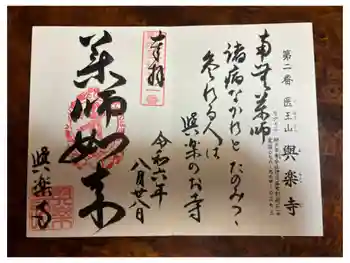 第二番 医王山 興楽寺
南無薬師
諸病なかれと たのみつゝ
参れる人は
興楽のお寺
奉拝
令和六年
八月廿八日
薬師如来
興楽寺